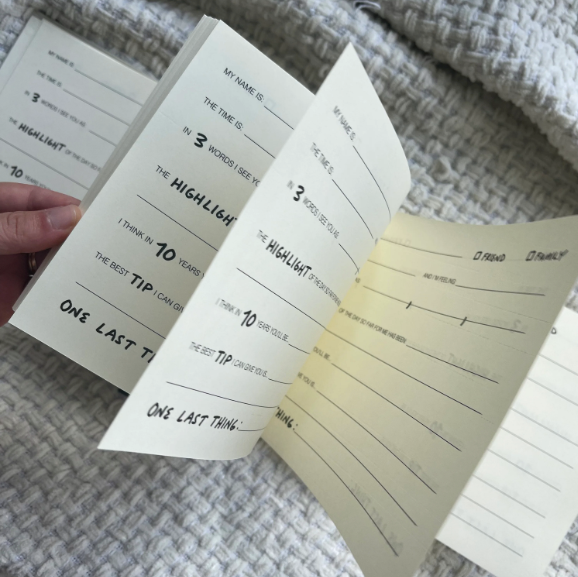 MY NAME IS
THE TIME IS
IN 3 WORDS I SEE YOU AS
THE HIGHLIGHT OF THE DAY
IN 10 YEARS
MY NAME IS
THE TIME IS
IN 3 WORDS I SEE YO
THE HIGHLIGHT
I THINK IN 10 YEARS
THE BEST TIP I CAN GI
ONE LAST T
MY NAME IS
THE TIME IS
IN 3 WORDS I SEE YOU AS
THE HIGHLIGHT OF THE DAY
I THINK IN 10 YEARS YOU'LL BE
THE BEST TIP I CAN GIVE YOU IS
ONE LAST THING:
FRIEND FAMILY
AND I'M FEELING
OF THE DAY SO FAR FOR ME HAS BEEN
YOU IS
THING: